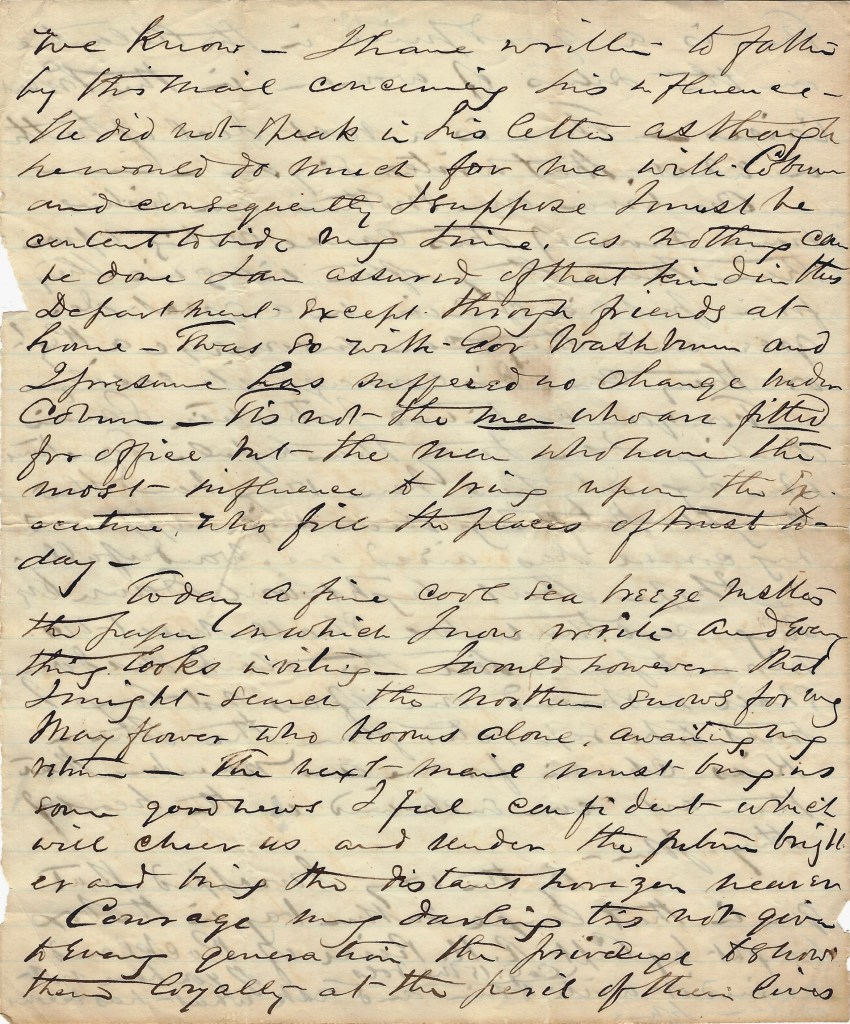 we know – I have written to father
by this mail concerning his influence –
He did not speak in his letter as though
he would do much for me with Coburn
and consequently I suppose I must be
content to bide my time, as nothing can
be done I am assured of that kind in this
Department except through friends at
home – Twas so with Gov Washburn and
I presume has suffered no change under
Coburn – Tis not the men who are fitted
for office but the men who have the
most influence to bring upon the Ex-
ecutive, who fill the places of trust to-
day –
Today a fine cool sea breeze
the paper on which I now write and every
thing looks inviting – I would however that
I might search the northern snows for my
May flower who blooms alone, awaiting my
return – The next mail must bring us
some good news I feel confident which
will cheer us and render the future bright
er and bring the distant horizon nearer
Courage my darling tis not given
to every generation the privilege to show
their loyalty at the peril of their lives